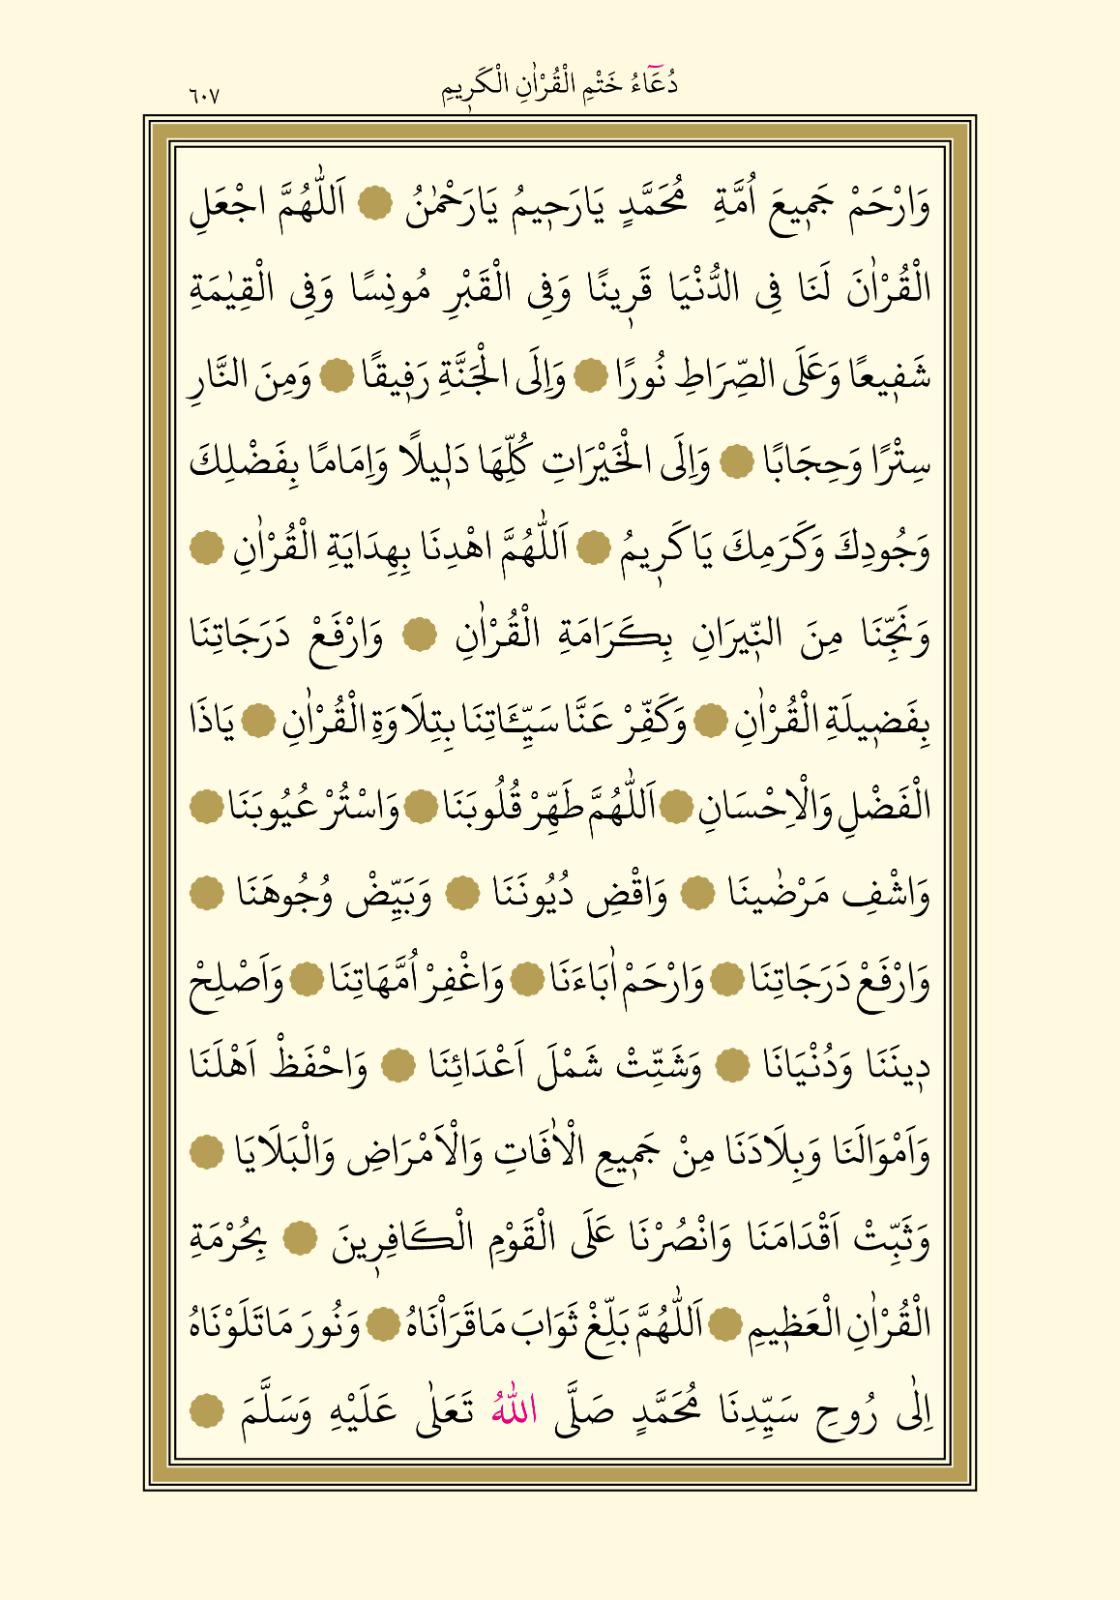 دُعَٓاءُ خَتْمِ الْقُرْاٰنِ الْكَرِيمِ
٦٠٧
وَارْحَمْ جَمِيعَ اُمَّةِ مُحَمَّدٍ يَارَحِيمُ يَارَحْمٰنُ ۝ اَللّٰهُمَّ اجْعَلِ
الْقُرْاٰنَ لَنَا فِى الدُّنْيَا قَرِينًا وَفِى الْقَبْرِ مُونِسًا وَفِى الْقِيٰمَةِ
شَفِيعًا وَعَلَى الصِّرَاطِ نُورًا ۝ وَاِلَى الْجَنَّةِ رَفِيقًا ۝ وَمِنَ النَّارِ
سِتْرًا وَحِجَابًا ۝ وَاِلَى الْخَيْرَاتِ كُلِّهَا دَلِيلًا وَاِمَامًا بِفَضْلِكَ
وَجُودِكَ وَكَرَمِكَ يَا كَرِيمُ ۝ اَللّٰهُمَّ اهْدِنَا بِهِدَايَةِ الْقُرْاٰنِ ۝
وَنَجِّنَا مِنَ النِّيرَانِ بِكَرَامَةِ الْقُرْاٰنِ ۝ وَارْفَعْ دَرَجَاتِنَا
بِفَضِيلَةِ الْقُرْاٰنِ ۝ وَكَفِّرْ عَنَّا سَيِّـَٔاتِنَا بِتِلَاوَةِ الْقُرْاٰنِ ۝ يَاذَا
الْفَضْلِ وَالْاِحْسَانِ ۝ اَللّٰهُمَّ طَهِّرْ قُلُوبَنَا ۝ وَاسْتُرْ عُيُوبَنَا ۝
وَاشْفِ مَرْضٰينَا ۝ وَاقْضِ دُيُونَنَا ۝ وَبَيِّضْ وُجُوهَنَا ۝
وَارْفَعْ دَرَجَاتِنَا ۝ وَارْحَمْ اٰبَاءَنَا ۝ وَاغْفِرْ اُمَّهَاتِنَا ۝ وَاَصْلِحْ
دِينَنَا وَدُنْيَانَا ۝ وَشَتِّتْ شَمْلَ اَعْدَائِنَا ۝ وَاحْفَظْ اَهْلَنَا
وَاَمْوَالَنَا وَبِلَادَنَا مِنْ جَمِيعِ الْاٰفَاتِ وَالْاَمْرَاضِ وَالْبَلَايَا ۝
وَثَبِّتْ اَقْدَامَنَا وَانْصُرْنَا عَلَى الْقَوْمِ الْكَافِرِينَ ۝ بِحُرْمَةِ
الْقُرْاٰنِ الْعَظِيمِ ۝ اَللّٰهُمَّ بَلِّغْ ثَوَابَ مَاقَرَاْنَاهُ ۝ وَنُورَ مَاتَلَوْنَاهُ
اِلٰى رُوحِ سَيِّدِنَا مُحَمَّدٍ صَلَّى اللّٰهُ تَعَلٰى عَلَيْهِ وَسَلَّمَ ۝